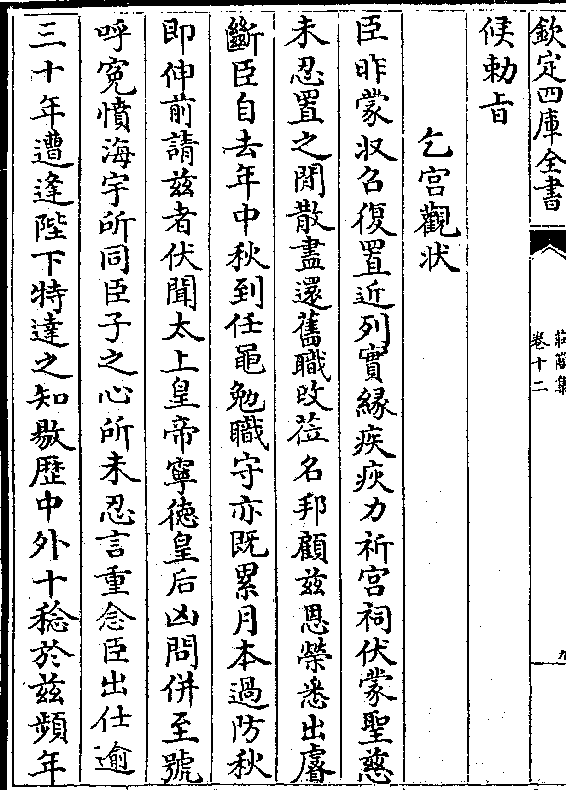 欽定四庫全書
卷十二
候勅旨
乞宫觀狀
臣昨蒙収召復置近列實縁疾疢力祈宫祠伏蒙聖慈
未忍置之閒散盡還舊職改莅名邦顧兹恩榮悉出睿
斷臣自去年中秋到任黽勉職守亦既累月本過防秋
即伸前請兹者伏聞太上皇帝寧徳皇后凶問併至號
呼寃憤海宇所同臣子之心所未忍言重念臣出仕逾
三十年遭逢陛下特達之知敭歴中外十稔於兹頻年